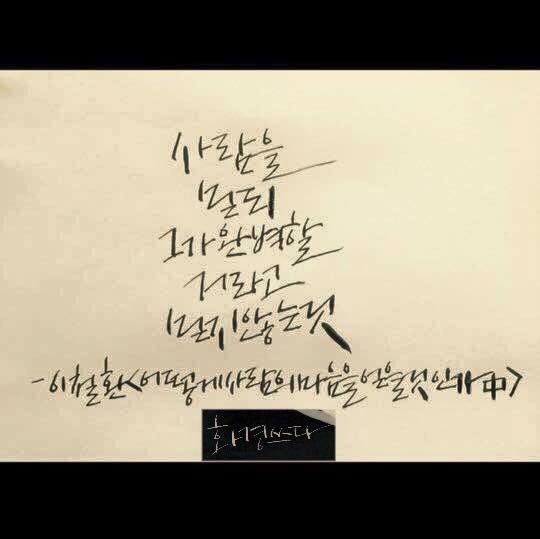 사람을
믿되
그가 완벽할
거라고
믿지 않는 것
- 이철환 <어떻게 사람의 마음을 얻을 것인가 中>
화경쓰다